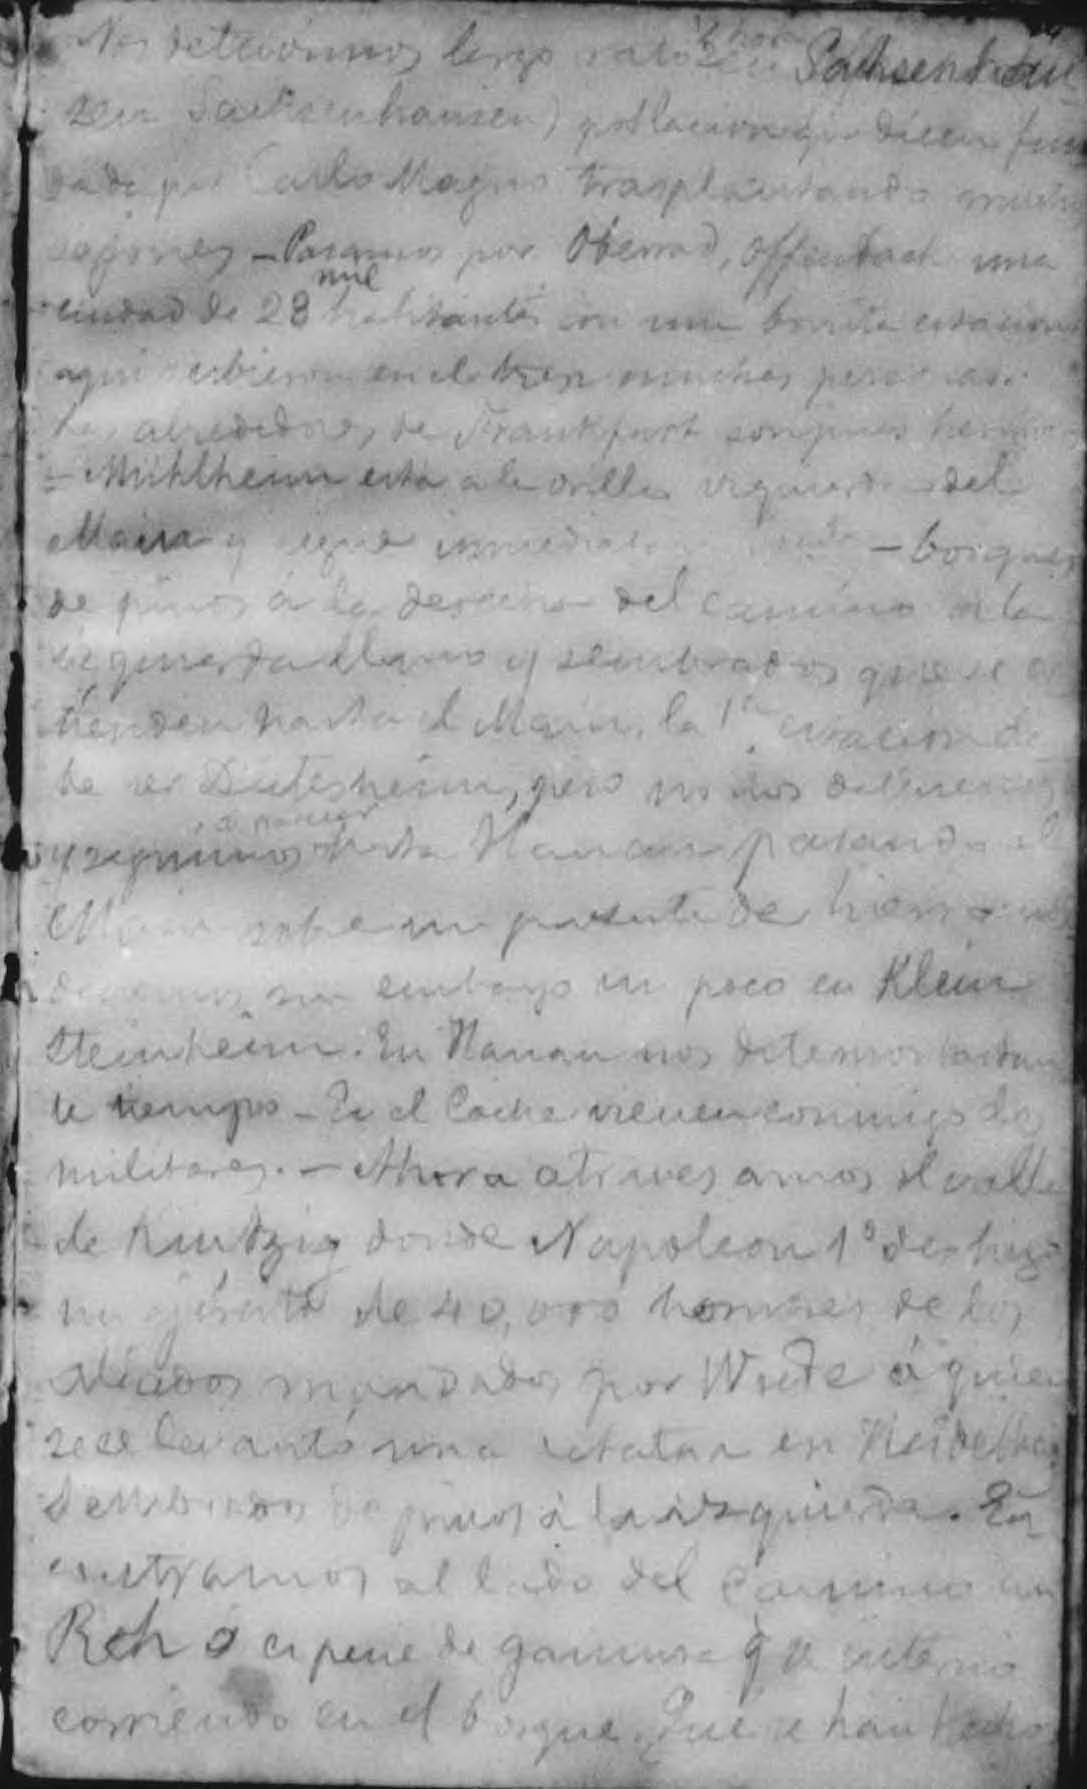 Nos detuvimos largo rato en Sachsenhau
sen Sachsenhausen) poblacion que dicen fun
dada por Carlo Magno trasplantando muchos
sajones – Pasamos por Oberrad, Offenbach una
ciudad de 28 mil habitantes con una bonita estacion
aqui subieron en el tren muchas personas.
Los alrededores de Frankfurt son
– Mühlheim esta a la orilla izquierda del
Main y sigue – bosques
de pinos á la derecha del camino a la
izquierda llano y sembrados que se es
tienden hasta el Main, la 1ª estacion de
be ser Dietesheim, pero no nos detuvimos
y seguimos hasta Hanau pasando el
Main sobre un puente de hierro nos
detuvimos sin embargo un poco en Klein
Steinheim. En Hanau nos detemos bastan
te tiempo – En el Coche vienen conmigo dos
militares. – Ahora atravesamos el valle
de Kintzig donde Napoleon 1º deshizo
un ejército de 40,000 hombres de los
aliados mandados por Wrede á quien
se le levantó una estatua en Heidelberg
Sembrados de pinos á la izquierda. En
contramos al lado del camino un
Reh ó especie de gamuza q se internó
corriendo en el bosque. Que se han hecho